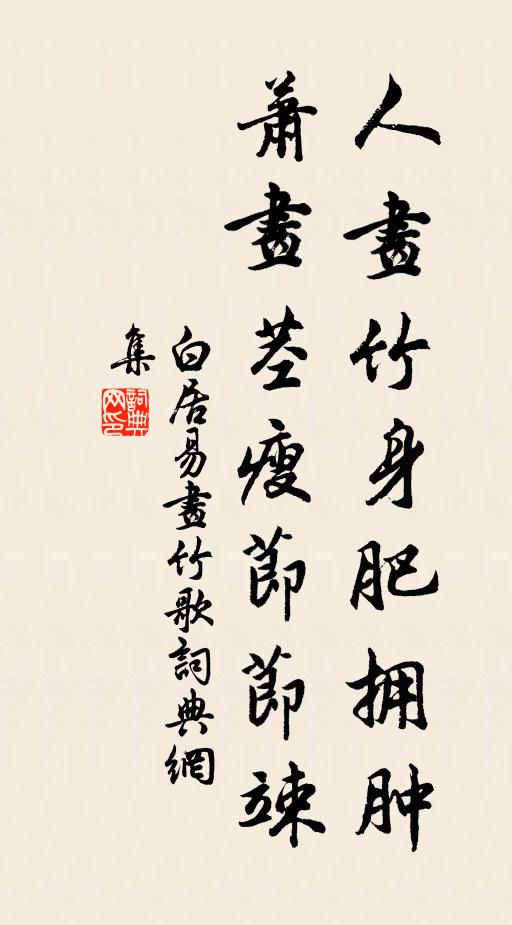 人畫竹身肥拥肿
蕭畫茎瘦節節竦
白居易畫竹歌詞典網
集
詞典
网印